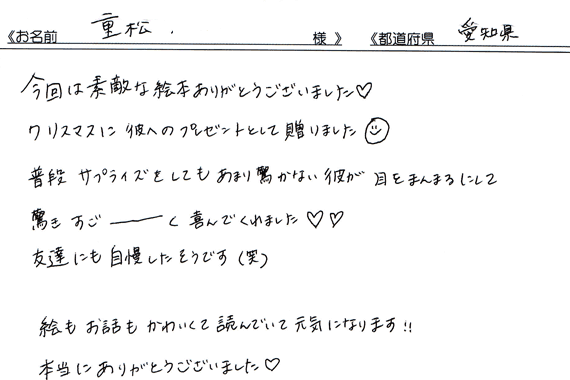 《お名前 重松. 様 》 《都道府県 愛知県
今回は素敵な絵本ありがとうございました♡
クリスマスに彼へのプレゼントとして贈りました☺
普段サプライズをしてもあまり驚かない彼が目をまんまるにして
驚きすご――く喜んでくれました♡♡
友達にも自慢したそうです(笑)
絵もお話もかわいくて読んでいて元気になります!!
本当にありがとうございました♡